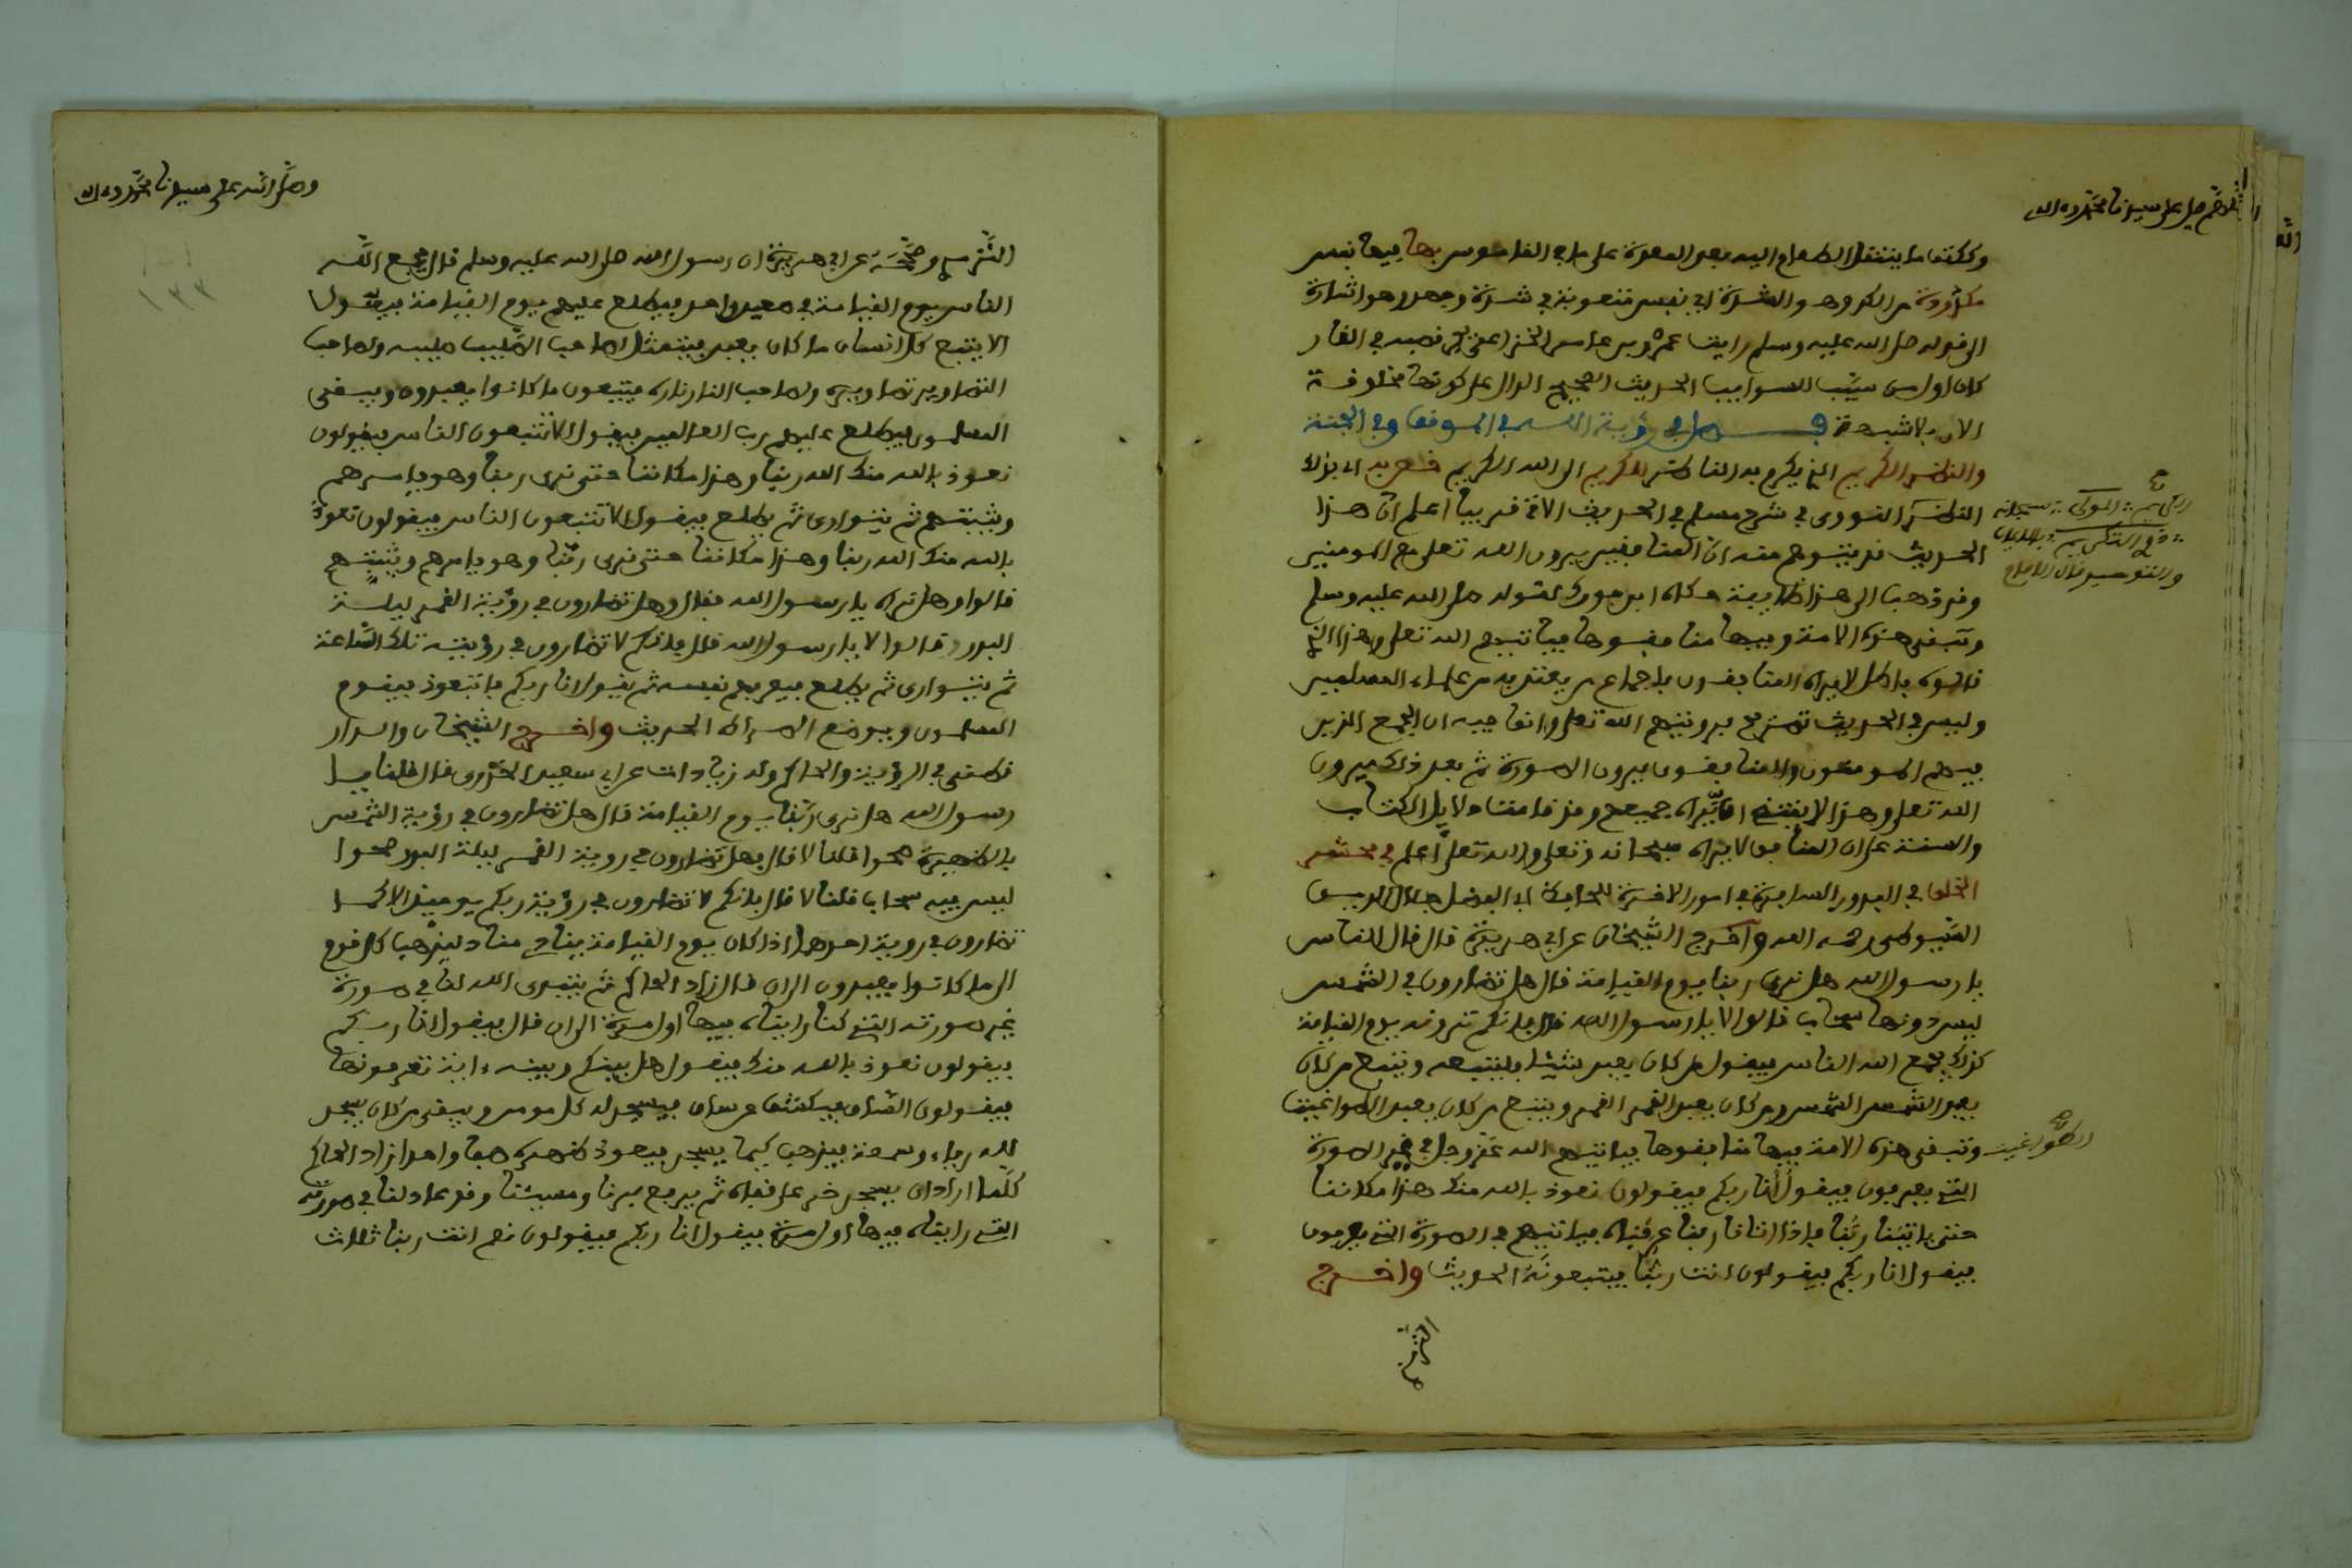 اللهم صل على سيدنا محمد وءاله
وككتف ما ينتقل الطعام اليه بعد المعدة على ما في القاموس بها فيها نفس
مطرودة من الكروه والشدة اي نفس متعوبة في شدة وجهد وهو اشارة
الى قوله صلى الله عليه وسلم رايت عمرو بن عامر الخزاعي يجر قصبه في النار
كان اول من سيب السوايب الحديث الصحيح الدال على كونها مخلوقة
الان بلا شبهة فصل في رؤية الله في الموقف وفي الجنة
والنظر الكريم الذي يكرم به الناظر الكريم الى الله الكريم
النووي في شرح مسلم في الحديث الاتي قريبا اعلم ان هذا
الحديث قد يتوهم منه ان المنافقين يرون الله تعلى مع المومنين
وقد ذهب الى هذا طايفة حكاه ابن فورك لقوله صلى الله عليه وسلم
وتبقى هذه الامة وفيها منافقوها فياتيهم الله تعلى وهذا الذي
قالوه باطل لا يراه المنافقون باجماع من يعتد به من علماء المسلمين
وليس في الحديث تصريح برويتهم الله تعلى وانما فيه ان الجمع الذين
فيهم المومنون والمنافقون يرون الصورة ثم بعد ذلك يرون
الله تعلى وهذا لا يقتضي ان يراه جميعهم وقد قامت دلايل الكتاب
والسنة على ان المنافق لا يراه سبحانه وتعلى والله تعلى اعلم في محشر
الخلق في البدور السافرة في امور الاخرة للحافظ ابي الفضل جلال الدين
السيوطي رحمه الله واخرج الشيخان عن ابي هريرة قال قال الناس
يا رسول الله هل نرى ربنا يوم القيامة قال هل تضارون في الشمس
ليس دونها سحاب قالوا لا يا رسول الله قال فانكم ترونه يوم القيامة
كذلك يجمع الله الناس فيقول من كان يعبد شيئا فليتبعه ويتبع من كان
يعبد الشمس الشمس ومن كان يعبد القمر القمر ويتبع من كان يعبد الطواغيت
الطواغيت
وتبقى هذه الامة فيها منافقوها فياتيهم الله عز وجل في غير الصورة
التي يعرفون فيقول انا ربكم فيقولون نعوذ بالله منك هذا مكاننا
حتى ياتينا ربنا فاذا اتانا ربنا عرفناه فياتيهم في الصورة التي يعرفون
فيقول انا ربكم فيقولون انت ربنا فيتبعونه الحديث واخرج
الترمذي
وصلى الله على سيدنا محمد وءاله
١٣٣
الترمذي وصححه عن ابي هريرة ان رسول الله صلى الله عليه وسلم قال يجمع الله
الناس يوم القيامة في صعيد واحد فيطلع عليهم يوم القيامة فيقول
الا يتبع كل انسان ما كان يعبد فيتمثل لصاحب الصليب صليبه ولصاحب
التصاوير تصاويره ولصاحب النار ناره فيتبعون ما كانوا يعبدوه ويبقى
المسلمون فيطلع عليهم رب العالمين فيقول الا تتبعون الناس فيقولون
نعوذ بالله منك الله ربنا وهذا مكاننا حتى نرى ربنا وهو يامرهم
ويثبتهم ثم يتوارى ثم يطلع فيقول الا تتبعون الناس فيقولون نعوذ
بالله منك الله ربنا وهذا مكاننا حتى نرى ربنا وهو يامرهم ويثبتهم
قالوا وهل نراه يا رسول الله فقال وهل تضارون في رؤية القمر ليلة
البدر قالوا لا يا رسول الله قال فانكم لا تضارون في رؤيته تلك الساعة
ثم يتوارى ثم يطلع فيعرفهم نفسه ثم يقول انا ربكم فاتبعون فيقوم
المسلمون ويوضع الصراط الحديث واخرج الشيخان والدار
قطني في الرؤية والحاكم وله زيادات عن ابي سعيد الخدري قال قلنا يا
رسول الله هل نرى ربنا يوم القيامة قال هل تضارون في رؤية الشمس
بالظهيرة صحوا قلنا لا قال فهل تضارون في روية القمر ليلة البدر صحوا
ليس فيه سحاب قلنا لا قال فانكم لا تضارون في رؤية ربكم يوميذ الا كما
تضارون في روية احدهما اذا كان يوم القيامة ينادي مناد ليذهب كل قوم
الى ما كانوا يعبدون الى ان قال زاد الحاكم ثم يتبدى الله لنا في صورة
غير صورته التي كنا رايناه فيها اول مرة الى ان قال فيقول انا ربكم
فيقولون نعوذ بالله منك فيقول هل بينكم وبينه ءاية تعرفونها
فيقولون الساق فيكشف عن ساق فيسجد له كل مومن ويبقى من كان يسجد
لله رياء وسمعة فيذهب كيما يسجد فيعود ظهره طبقا واحدا زاد الحاكم
كلما اراد ان يسجد خر على قفاه ثم يرفع برنا ومسيئنا وقد عاد لنا في صورته
التي رايناه فيها اول مرة فيقول انا ربكم فيقولون نعم انت ربنا ثلاث